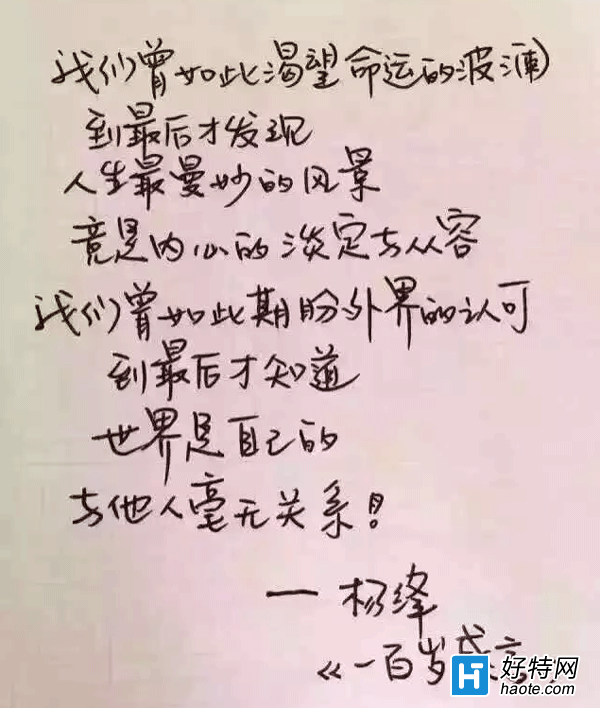 我们曾如此渴望命运的波澜
到最后才发现
人生最曼妙的风景
竟是内心的淡定与从容
我们曾如此期盼外界的认可
到最后才知道
世界是自己的
与他人毫无关系！
一 杨绛
《一百岁感言
好特网
haote.com